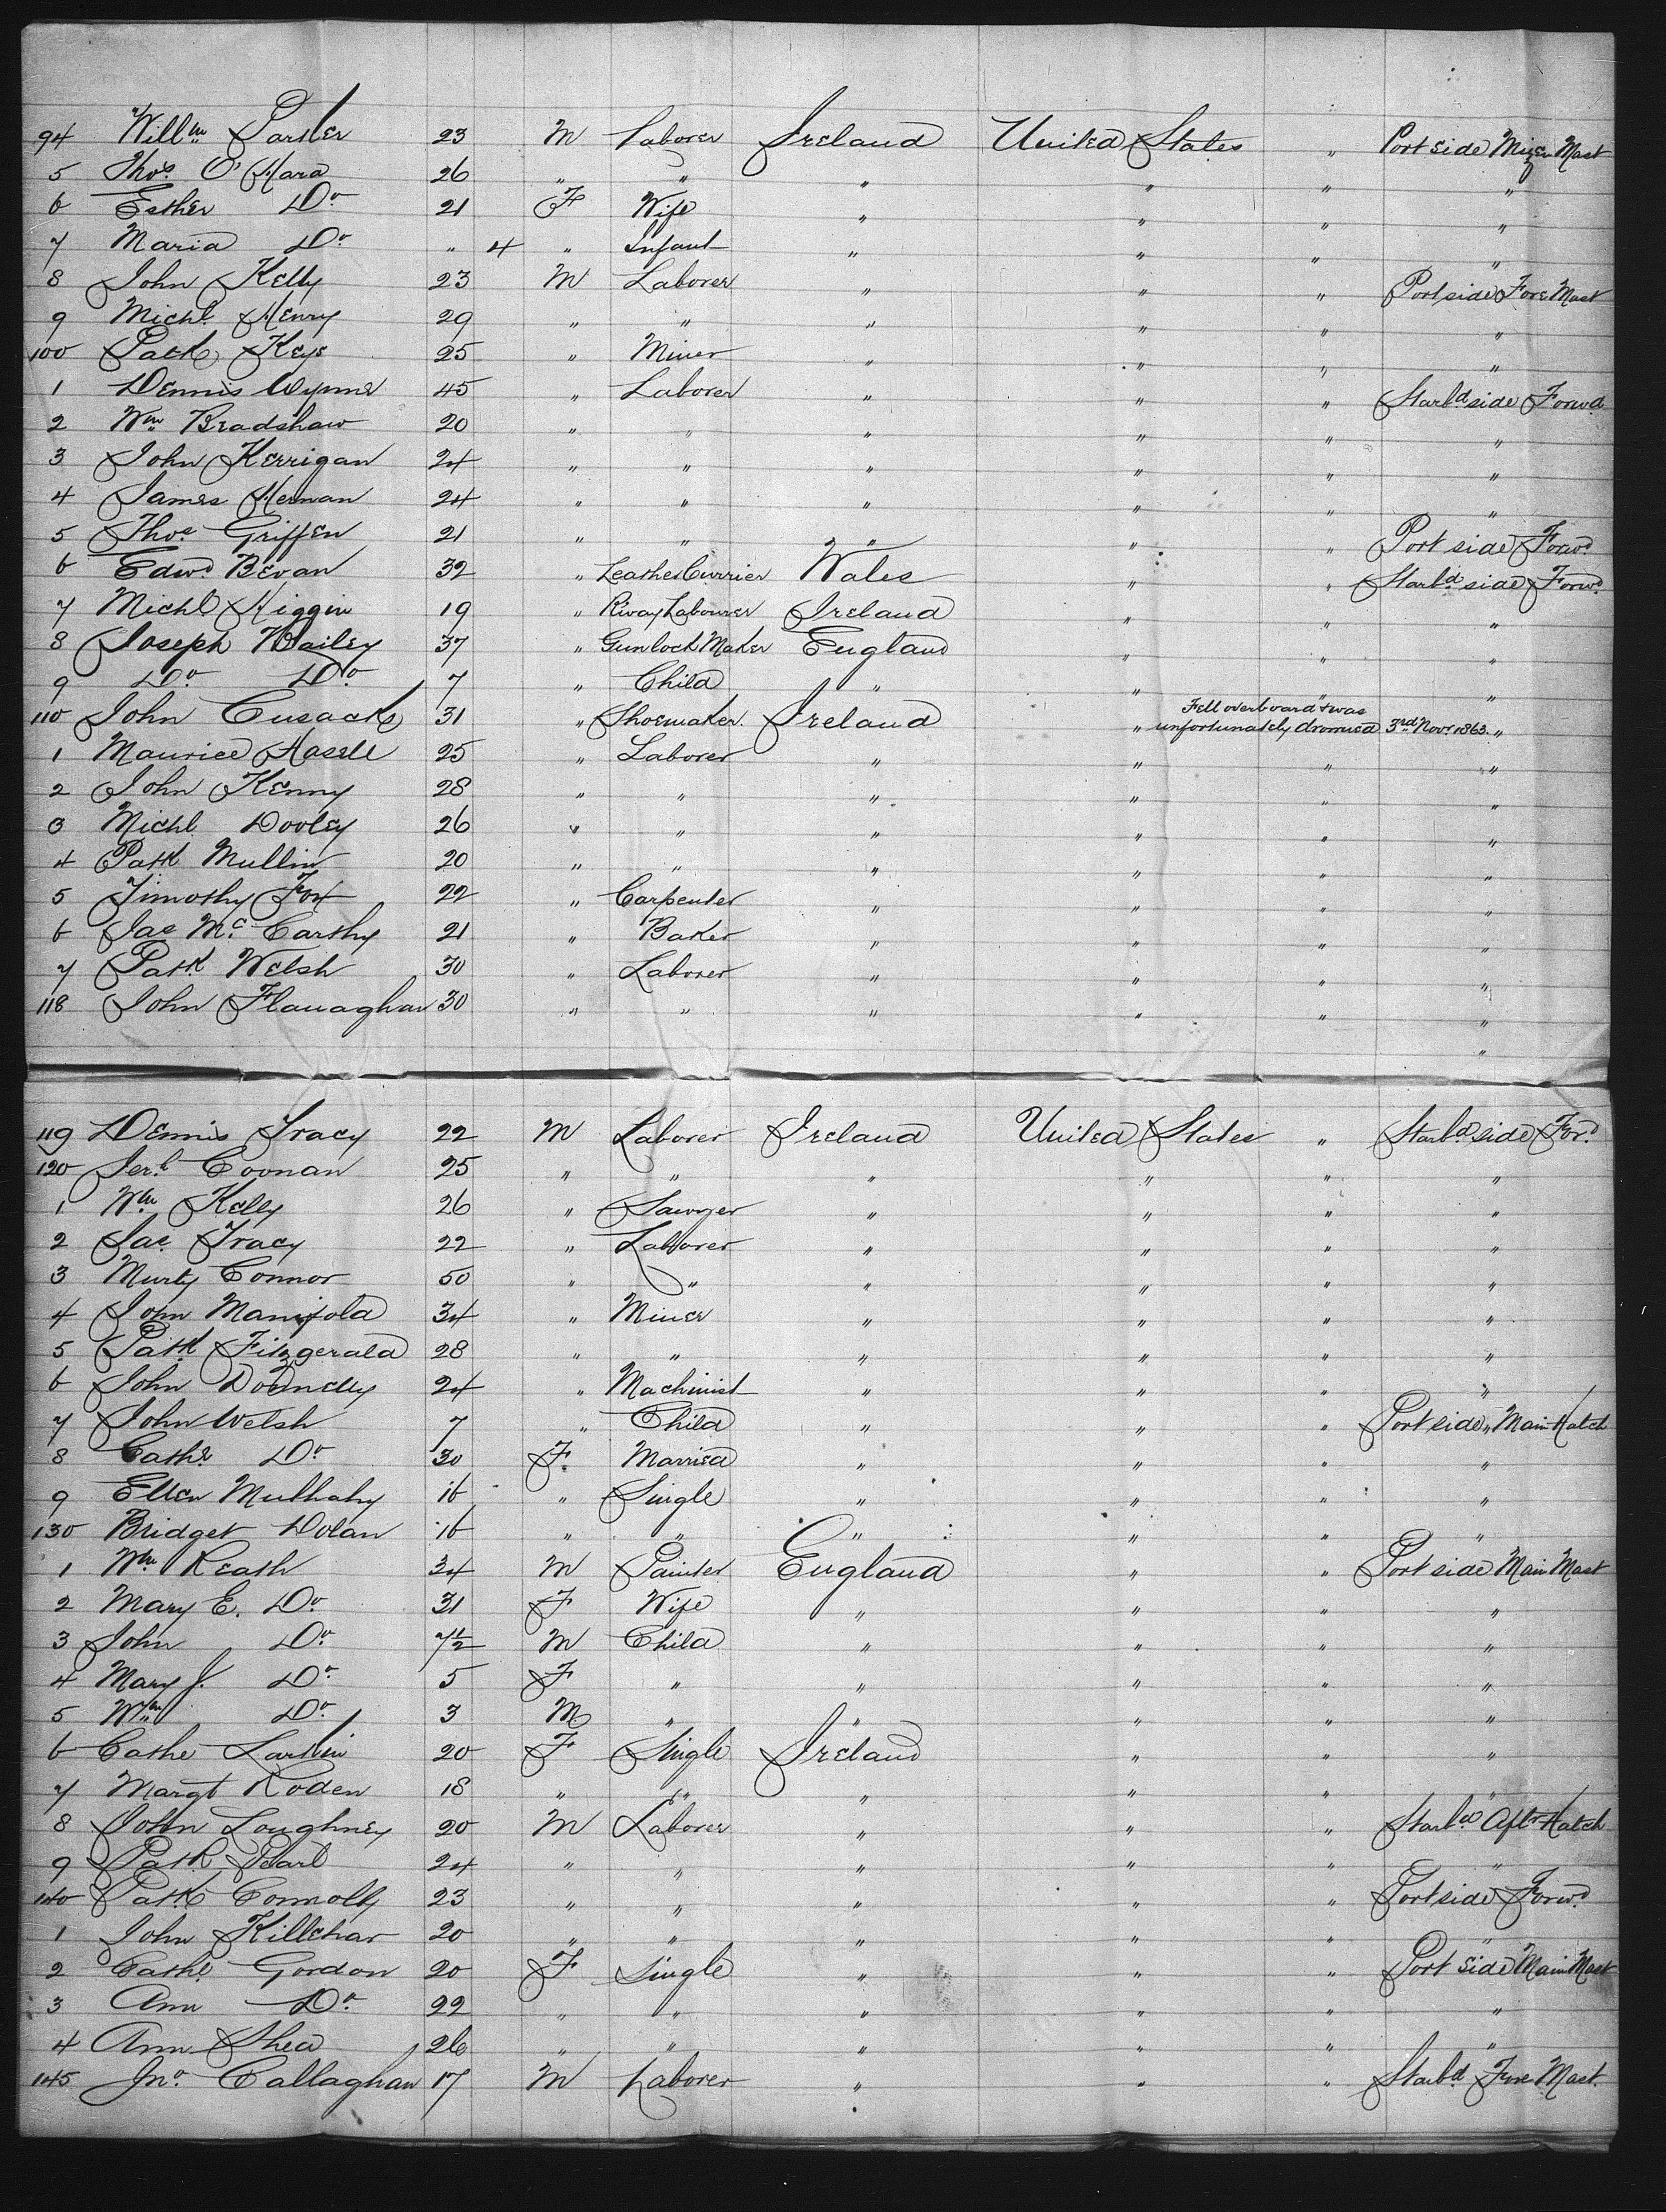 94 Willm Parker 23 M Laborer Ireland United States " Port side Mizen Mast
5 Thos. O'Hara 26 " " " " " "
6 Esther Do. 21 F Wife " " " "
7 Maria Do. " 4 " Infant " " " "
8 John Kelly 23 M Laborer " " " Port side Fore Mast
9 Michl. Henry 29 " " " " " "
100 Patk Keys 25 " Miner " " " "
1 Dennis Wynne 45 " Laborer " " " Starbd side Forwd
2 Wm Bradshaw 20 " " " " " "
3 John Kerrigan 24 " " " " " "
4 James Hernan 24 " " " " " "
5 Thos Griffen 21 " " " " " Port side Forwd
6 Edwd Bevan 32 " Leather Currier Wales " " Starbd side Forwd.
7 Michl Higgin 19 " Rlway Labourer Ireland " " "
8 Joseph Bailey 37 " Gunlock Maker England " " "
9 Do Do 7 " Child " " " "
110 John Cusack 31 " Shoemaker. Ireland " Fell overboard & was
unfortunately drowned 3rd Nov. 1863. "
1 Maurice 25 " Laborer " " " "
2 John Kenny 28 " " " " " "
3 Michl Dooley 26 " " " " " "
4 Patk Mullin 20 " " " " " "
5 Timothy Fox 22 " Carpenter " " " "
6 Jas McCarthy 21 " Baker " " " "
7 Patk Welsh 30 " Laborer " " " "
118 John Flanaghan 30 " " " " " "
"
119 Dennis Tracy 22 M Laborer Ireland United States " Starbd side Ford
120 Jerh Coonan 25 " " " " " "
1 Wm Kelly 26 " Sawyer " " " "
2 Jas. Tracy 22 " Laborer " " " "
3 Murty Connor 50 " " " " " "
4 John Manifold 34 " Miner " " " "
5 Patk Fitzgerald 28 " " " " " "
6 John Donnelly 24 " Machinist " " " "
7 John Welsh 7 " Child " " " Port side " Main Hatch
8 Cathe Do 30 F. Married " " " "
9 Ellen Mulhahy 16 " Single " " " "
130 Bridget Dolan 16 " " " " " "
1 Wm Keath 34 M Painter England " " Port side Main Mast
2 Mary E. Do. 31 F Wife " " " "
3 John Do. 7½ M Child " " " "
4 Mary J. Do. 5 F " " " " "
5 Wm Do. 3 M " " " " "
6 Cathe Larkin 20 F Single Ireland " " "
7 Margt Roden 18 " " " " " "
8 John Loughney 20 M Laborer " " " Starbd Aftr Hatch
9 Patk Pearl 24 " " " " " "
140 Patk Connolly 23 " " " " " Port side Forwd
1 John Killehar 20 " " " " " "
2 Cathe Gordon 20 F Single " " " Port side Main Mast
3 Ann Do. 22 " " " " " "
4 Ann Shea 26 " " " " " "
145 Jno. Callaghan 17 M Laborer " " " Starbd Fore Mast.